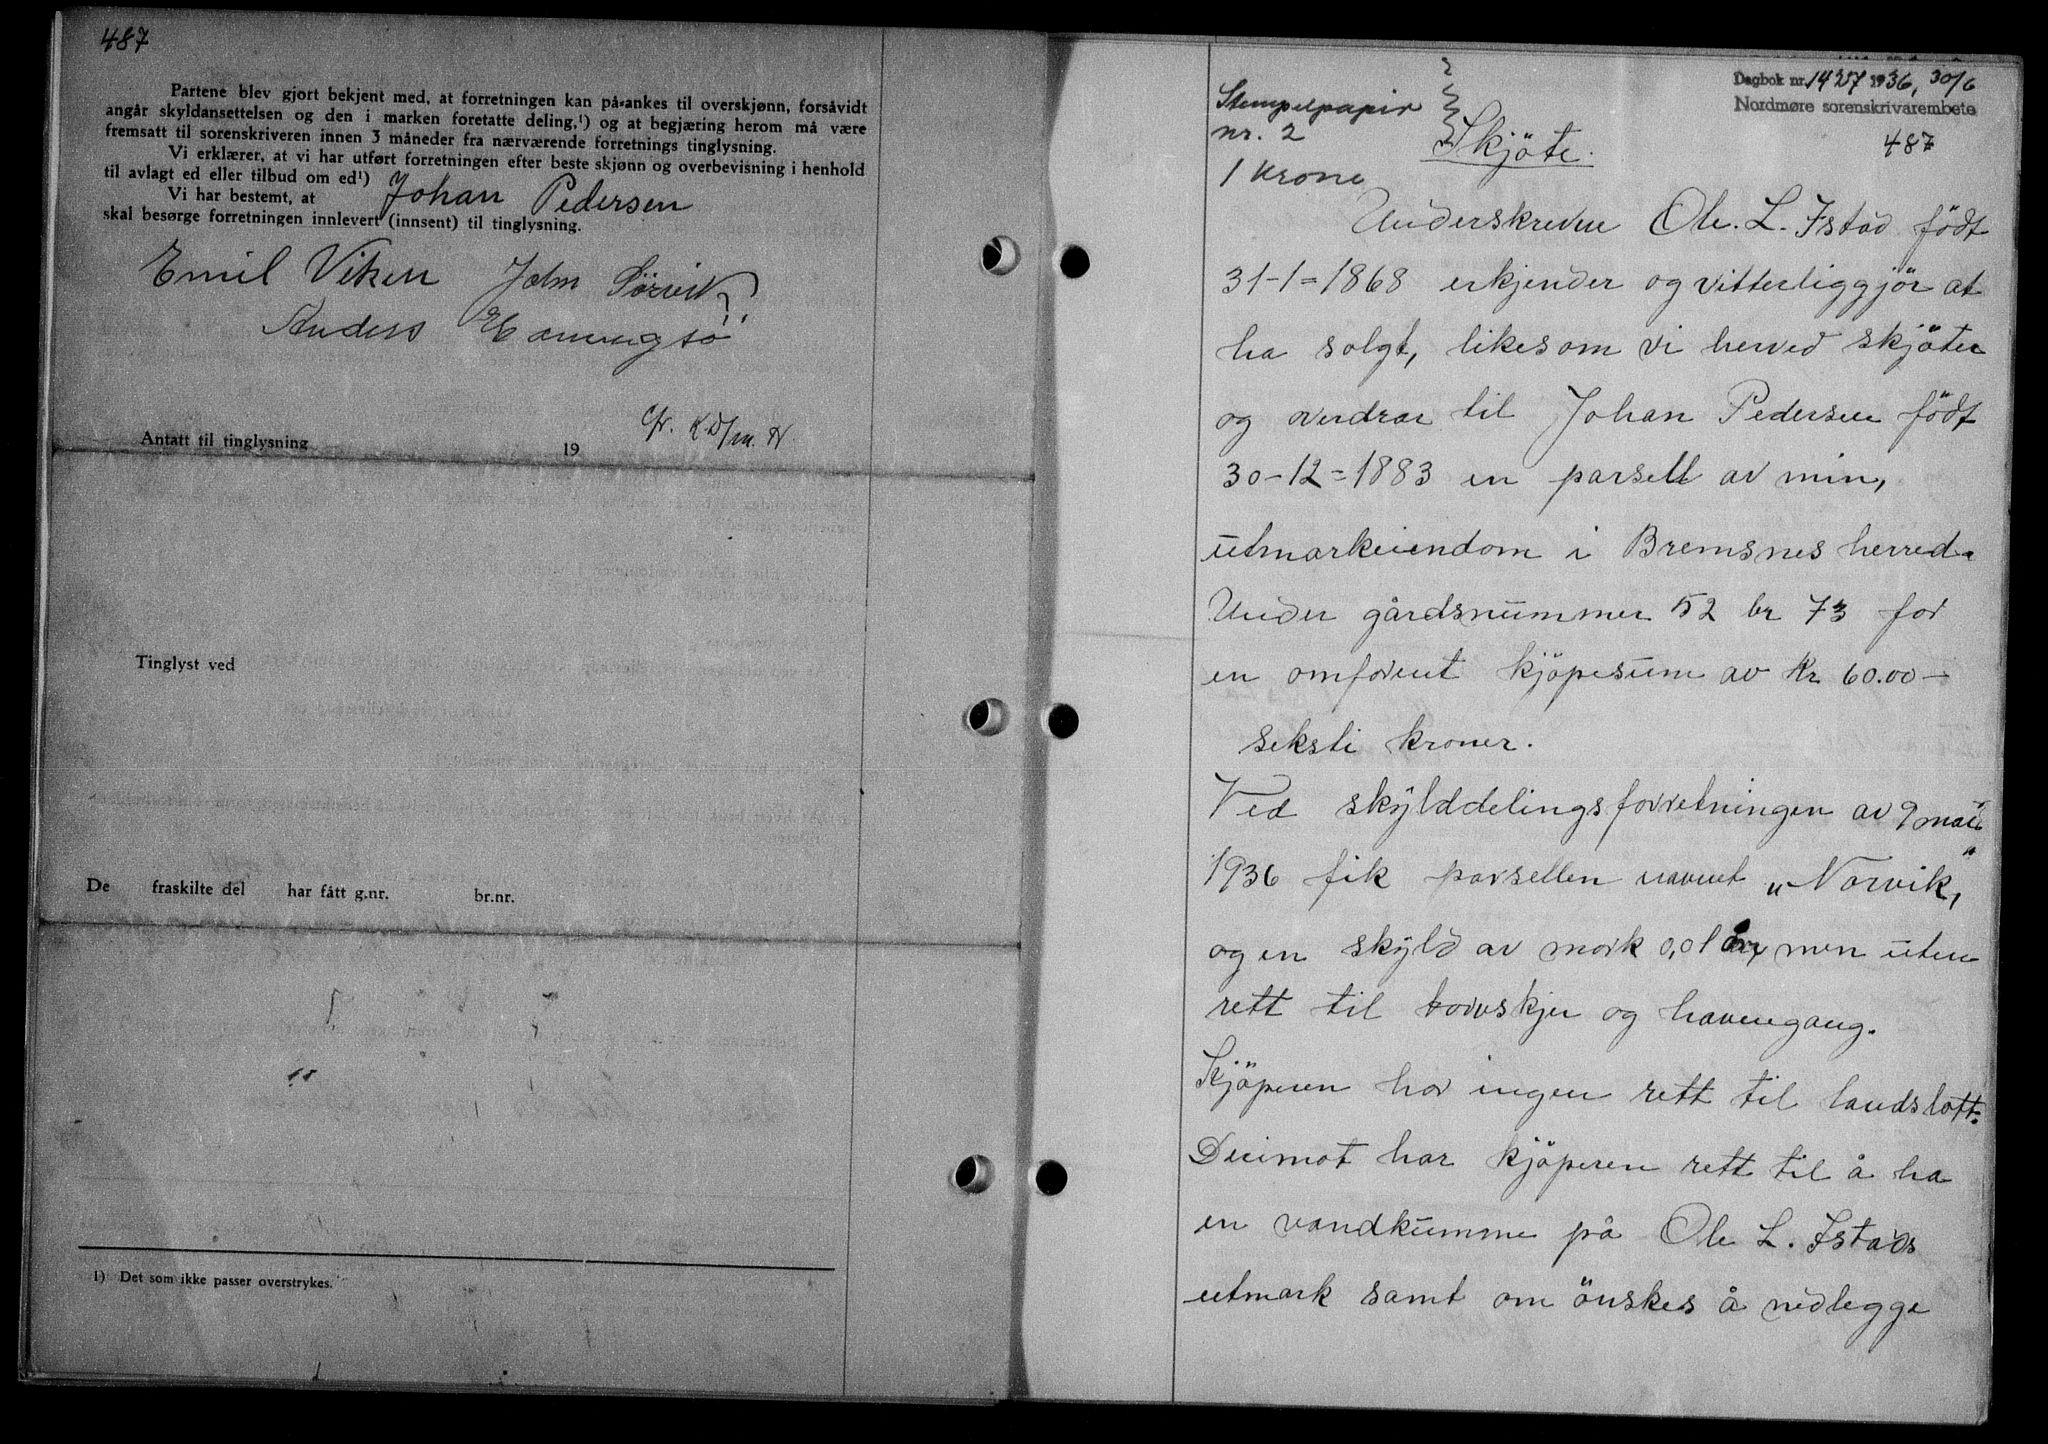 487
Partene blev gjort bekjent med, at forretningen kan på-ankes til overskjønn, forsåvidt
angår skyldansettelsen og den i marken foretatte deling,¹) og at begjæring herom må være
fremsatt til sorenskriveren innen 3 måneder fra nærværende forretnings tinglysning.
Vi erklærer, at vi har utført forretningen efter beste skjønn og overbevisning i henhold
til avlagt ed eller tilbud om ed¹)
Vi har bestemt, at Johan Pedersen
skal besørge forretningen innlevert (innsent) til tinglysning.
Emil Viken John Sørvik
Anders
Antatt til tinglysning 19
Tinglyst ved
De fraskilte del har fått g.nr. br.nr.
1) Det som ikke passer overstrykes.
Dagbok nr. 1427 1936, 30/6
Nordmøre sorenskrivarembete
487
Stempelpapir
nr. 2
1 Krone
Skjöte.
Underskrevne Ole. L. Istad födt
31-1=1868 erkjender og vitterliggjör at
ha solgt, likesom vi herved skjöter
og overdrar til Johan Pedersen födt
30-12=1883 en parsell av min,
utmarkeiendom i Bremsnes herred.
Under gårdsnummer 52 br 73 for
en omforent kjöpesum av Kr 60.00-
seksti kroner.
Ved skylddelingsforretningen av 9 mai
1936 fik parsellen navnet „Norvik",
og en skyld av mark 0,01 öre, men uten
rett til torvskjer og havnegang.
Kjöperen har ingen rett til landslott.
Derimot har kjöperen rett til å ha
en vandkumme på Ole L. Istads
utmark samt om önskes å nedlegge